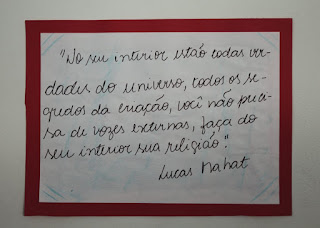 "No seu interior estão todas ver-
dades do universo, todos os se-
gredos da criação, você não preci-
sa de vozes externas, faça do
seu interior sua religião."
Lucas Nahat